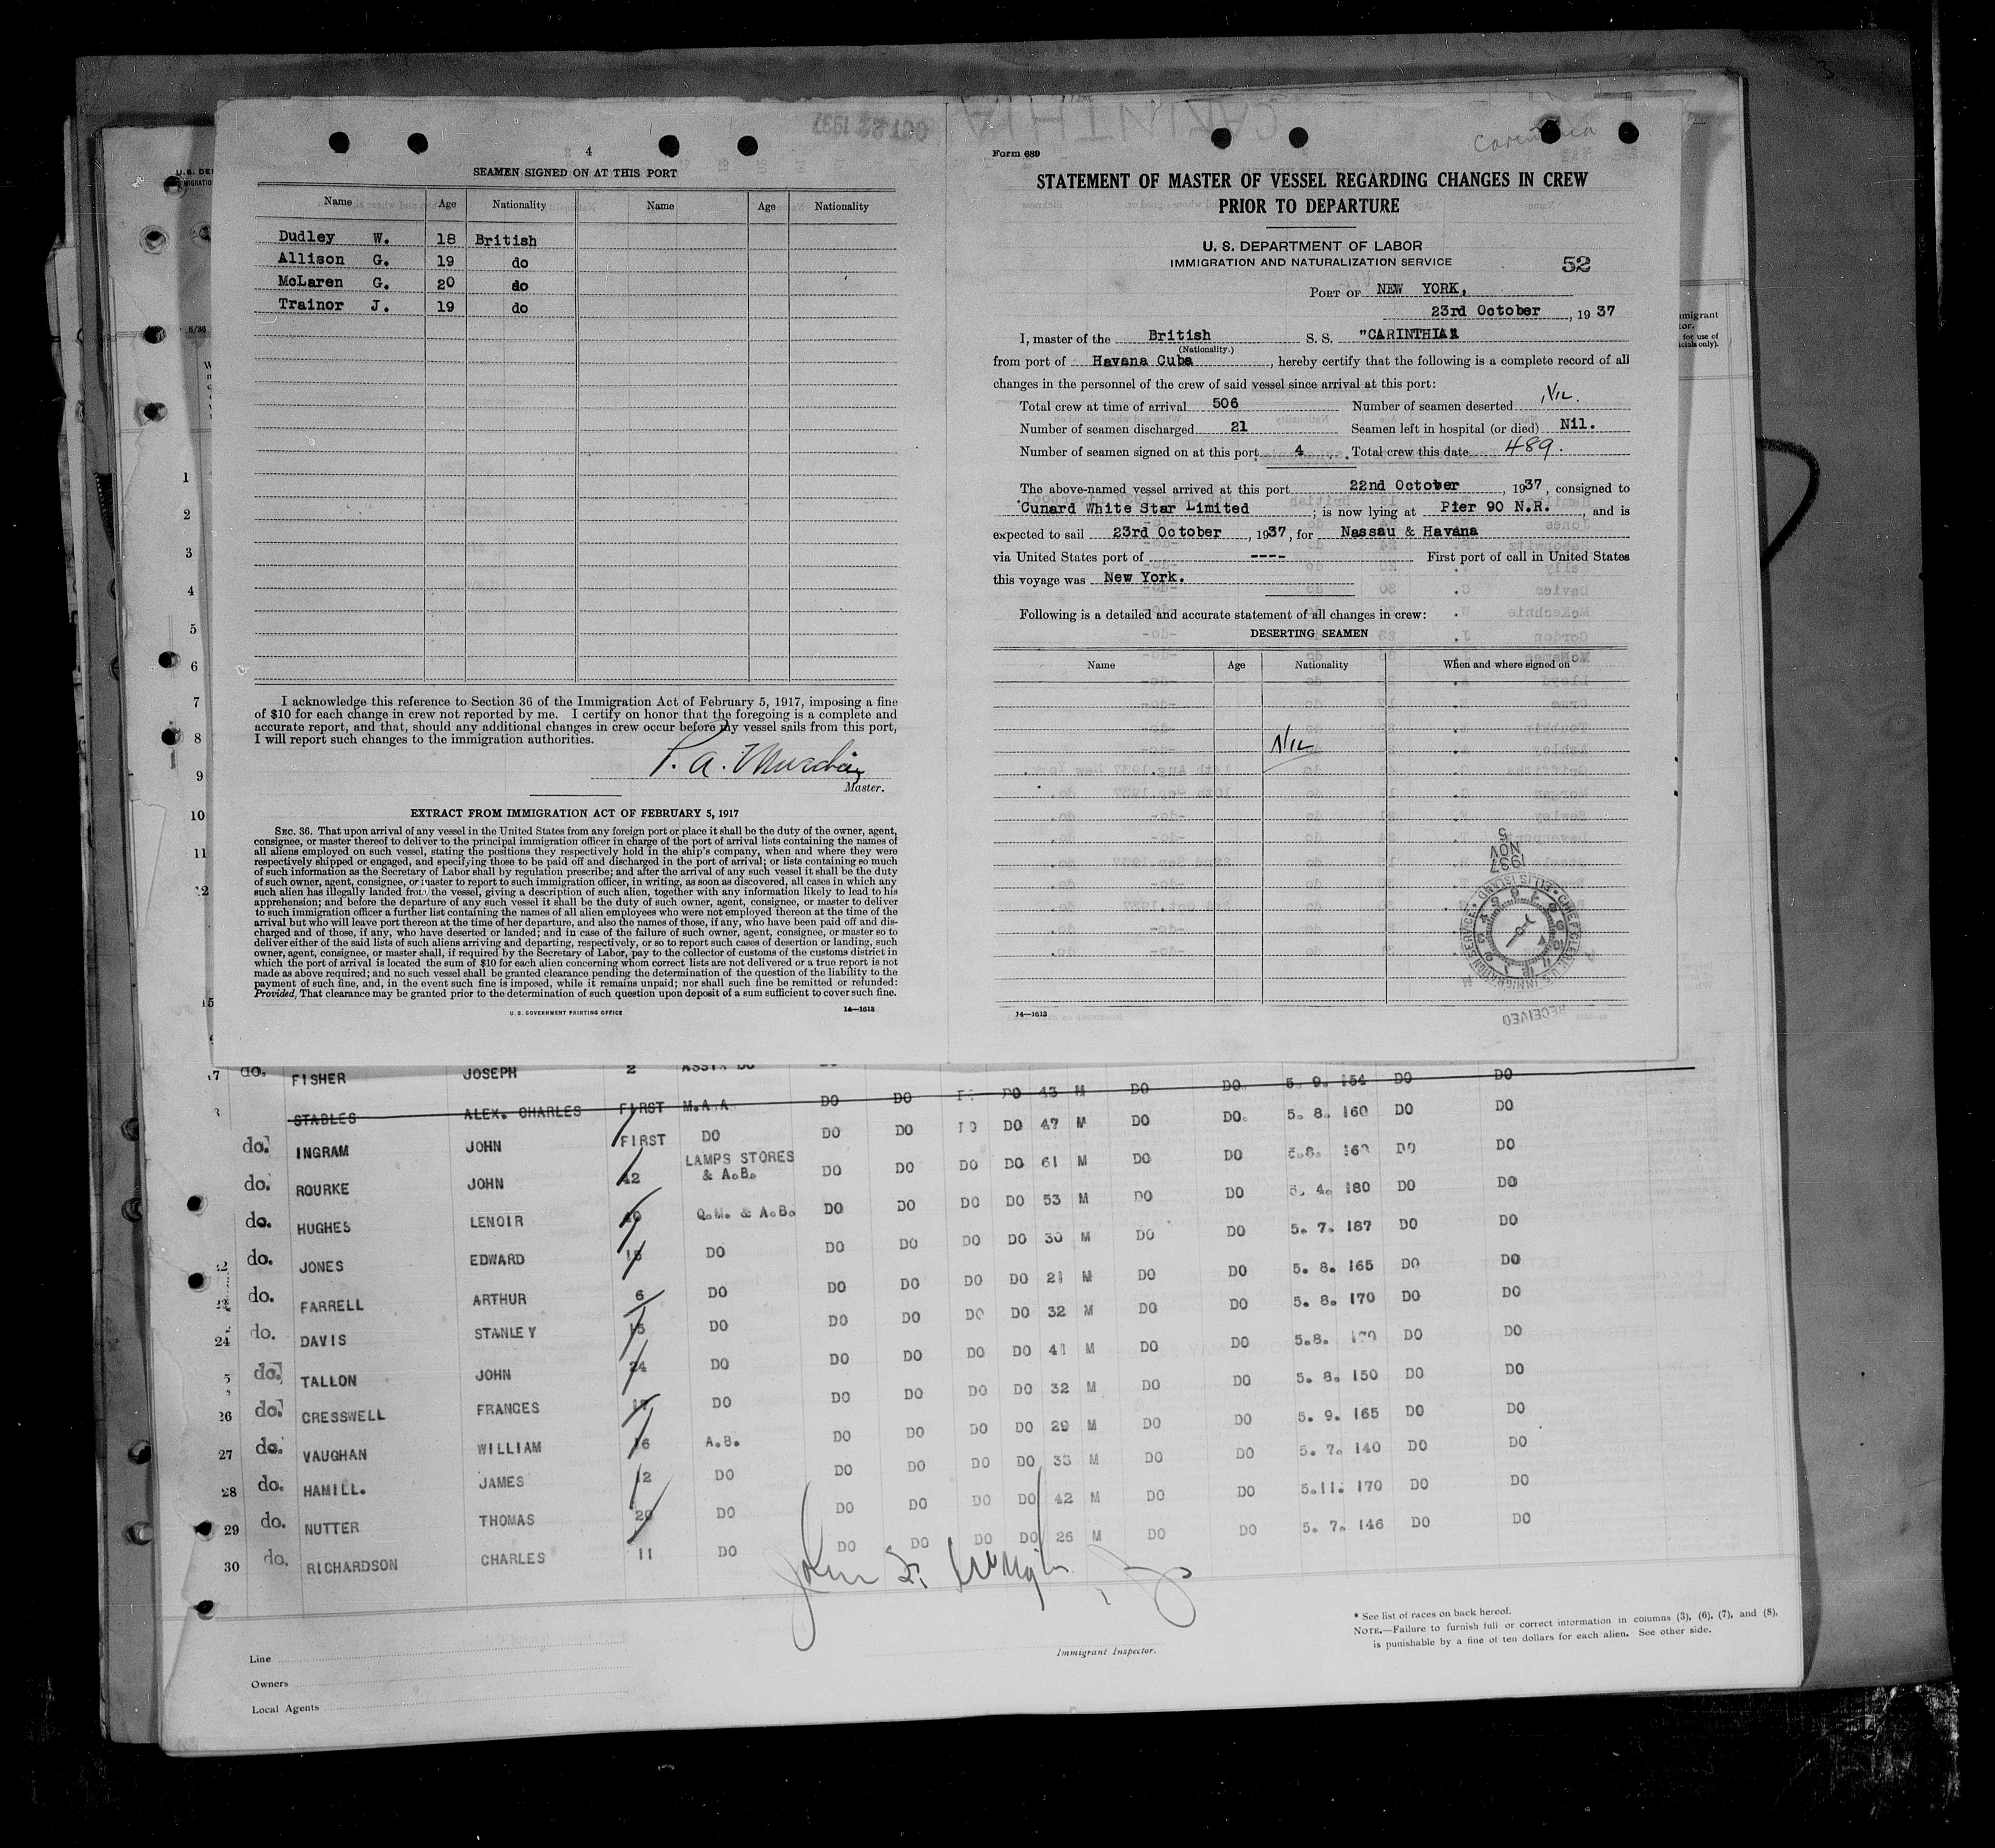 4
SEAMEN SIGNED ON AT THIS PORT
Name Age Nationality Name Age Nationality
Dudley W. 18 British
Allison G. 19 do
McLaren G. 20 do
Trainor J. 19 do
I acknowledge this reference to Section 36 of the Immigration Act of February 5, 1917, imposing a fine
of $10 for each change in crew not reported by me. I certify on honor that the foregoing is a complete and
accurate report, and that, should any additional changes in crew occur before my vessel sails from this port,
I will report such changes to the immigration authorities.
Master.
EXTRACT FROM IMMIGRATION ACT OF FEBRUARY 5, 1917
SEC. 36. That upon arrival of any vessel in the United States from any foreign port or place it shall be the duty of the owner, agent,
consignee, or master thereof to deliver to the principal immigration officer in charge of the port of arrival lists containing the names of
all aliens employed on such vessel, stating the positions they respectively hold in the ship's company, when and where they were
respectively shipped or engaged, and specifying those to be paid off and discharged in the port of arrival; or lists containing so much
of such information as the Secretary of Labor shall by regulation prescribe; and after the arrival of any such vessel it shall be the duty
of such owner, agent, consignee, or master to report to such immigration officer, in writing, as soon as discovered, all cases in which any
such alien has illegally landed from the vessel, giving a description of such alien, together with any information likely to lead to his
apprehension; and before the departure of any such vessel it shall be the duty of such owner, agent, consignee, or master to deliver
to such immigration officer a further list containing the names of all alien employees who were not employed thereon at the time of the
arrival but who will leave port thereon at the time of her departure, and also the names of those, if any, who have been paid off and dis-
charged and of those, if any, who have deserted or landed; and in case of the failure of such owner, agent, consignee, or master so to
deliver either of the said lists of such aliens arriving and departing, respectively, or so to report such cases of desertion or landing, such
owner, agent, consignee, or master shall, if required by the Secretary of Labor, pay to the collector of customs of the customs district in
which the port of arrival is located the sum of $10 for each alien concerning whom correct lists are not delivered or a true report is not
made as above required; and no such vessel shall be granted clearance pending the determination of the question of the liability to the
payment of such fine, and, in the event such fine is imposed, while it remains unpaid; nor shall such fine be remitted or refunded:
Provided, That clearance may be granted prior to the determination of such question upon deposit of a sum sufficient to cover such fine.
U. S. GOVERNMENT PRINTING OFFICE 14—1613
Form 689
Carinthia
STATEMENT OF MASTER OF VESSEL REGARDING CHANGES IN CREW
PRIOR TO DEPARTURE
U. S. DEPARTMENT OF LABOR
IMMIGRATION AND NATURALIZATION SERVICE
52
PORT OF NEW YORK,
23rd October, 1937
I, master of the British S. S. "CARINTHIA"
(Nationality.)
from port of Havana Cuba, hereby certify that the following is a complete record of all
changes in the personnel of the crew of said vessel since arrival at this port:
Total crew at time of arrival 506 Number of seamen deserted Nil.
Number of seamen discharged 21 Seamen left in hospital (or died) Nil.
Number of seamen signed on at this port 4 Total crew this date 489.
The above-named vessel arrived at this port 22nd October, 1937, consigned to
Cunard White Star Limited; is now lying at Pier 90 N.R., and is
expected to sail 23rd October, 1937, for Nassau & Havana
via United States port of ---- First port of call in United States
this voyage was New York.
Following is a detailed and accurate statement of all changes in crew:
DESERTING SEAMEN
Name Age Nationality When and where signed on
Nil
1937
NOV
5
CHIEF CLERK U.S. IMMIGRATION SERVICE ELLIS ISLAND
RECEIVED
14—1613
do. FISHER JOSEPH 2 ASST. DO
STABLES ALEX. CHARLES FIRST M.A.A. DO DO DO 43 M DO DO. 5. 9. 154 DO DO
do. INGRAM JOHN FIRST DO DO DO DO DO 47 M DO DO. 5. 8. 160 DO DO
do. ROURKE JOHN 42 LAMPS STORES & A.B. DO DO DO DO 61 M DO DO 5.8. 160 DO DO
do. HUGHES LENOIR Q.M. & A.B. DO DO DO DO 53 M DO DO 5. 4. 180 DO DO
22 do. JONES EDWARD 15 DO DO DO DO DO 30 M DO DO 5. 7. 187 DO DO
23 do. FARRELL ARTHUR 6 DO DO DO DO DO 21 M DO DO 5. 8. 165 DO DO
24 do. DAVIS STANLEY 15 DO DO DO DO DO 32 M DO DO 5. 8. 170 DO DO
do. TALLON JOHN 24 DO DO DO DO DO 41 M DO DO 5.8. DO DO
26 do. CRESSWELL FRANCES 17 DO DO DO DO DO 32 M DO DO 5. 8. 150 DO DO
27 do. VAUGHAN WILLIAM 16 A.B. DO DO DO DO 29 M DO DO 5. 9. 165 DO DO
28 do. HAMILL. JAMES 12 DO DO DO DO DO 33 M DO DO 5. 7. 140 DO DO
29 do. NUTTER THOMAS 20 DO DO DO DO DO 42 M DO DO 5.11. 170 DO DO
30 do. RICHARDSON CHARLES 11 DO DO DO DO DO 26 M DO DO 5. 7. 146 DO DO
Immigrant Inspector.
Line
Owners
Local Agents
* See list of races on back hereof.
NOTE.—Failure to furnish full or correct information in columns (3), (6), (7), and (8),
is punishable by a fine of ten dollars for each alien. See other side.